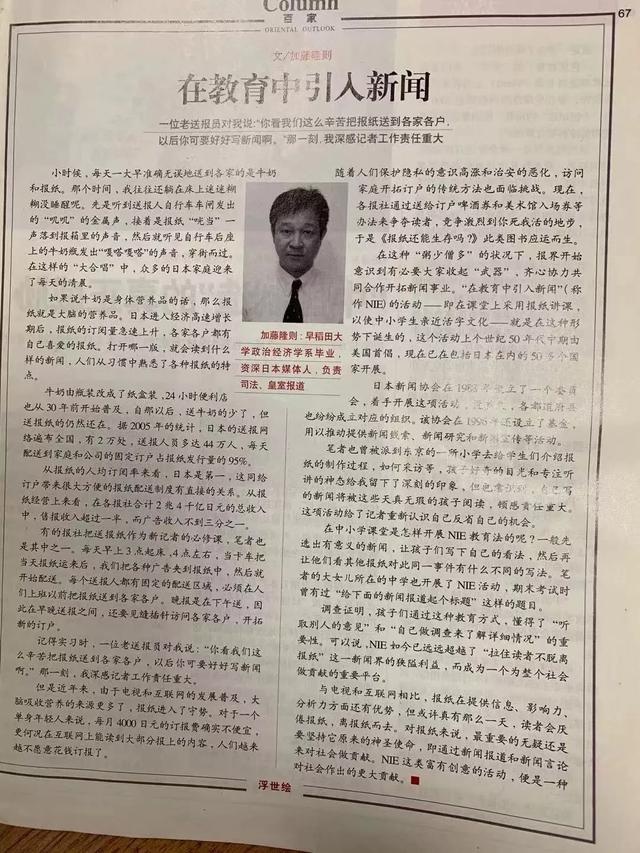 Column
百家
ORIENTAL OUTLOOK
67
文/加藤隆则
在教育中引入新闻
一位老送报员对我说:“你看我们这么辛苦把报纸送到各家各户,
以后你可要好好写新闻啊。”那一刻,我深感记者工作责任重大
小时候,每天一大早准确无误地送到各家的是牛奶
和报纸。那个时间,我往往还躺在床上迷迷糊
糊没睡醒呢。先是听到送报人自行车车闸发出
的“叽叽”的金属声,接着是报纸“咣当”一
声落到报箱里的声音,然后就听见自行车后座
上的牛奶瓶发出“嘎嗒嘎嗒”的声音,穿街而过。
在这样的“大合唱”中,众多的日本家庭迎来
了每天的清晨。
如果说牛奶是身体营养品的话,那么报
纸就是大脑的营养品。日本进入经济高速增长
期后,报纸的订阅量急速上升,各家各户都有
自己喜爱的报纸。打开哪一版,就会读到什么
样的新闻,人们从习惯中熟悉了各种报纸的特
点。
牛奶由瓶装改成了纸盒装,24小时便利店
也从30年前开始普及,自那以后,送牛奶的少了,但
送报纸的仍然还在。据2005年的统计,日本的送报网
络遍布全国,有2万处,送报人员多达44万人,每天
配送到家庭和公司的固定订户占报纸发行量的95%。
从报纸的人均订阅率来看,日本是第一,这同给
订户带来很大方便的报纸配送制度有直接的关系。从报
纸经营上来看,在各报社合计2兆4千亿日元的总收入
中,售报收入超过一半,而广告收入不到三分之一。
有的报社把送报纸作为新记者的必修课,笔者也
是其中之一。每天早上3点起床,4点左右,当卡车把
当天报纸运来后,我们把各种广告夹到报纸中,然后就
开始配送。每个送报人都有固定的配送区域,必须在人
们上班以前把报纸送到各家各户。晚报是在下午送,因
此在早晚送报之间,还要见缝插针访问各家各户,开拓
新的订户。
记得实习时,一位老送报员对我说:“你看我们这
么辛苦把报纸送到各家各户,以后你可要好好写新闻
啊。”那一刻,我深感记者工作责任重大。
但是近年来,由于电视和互联网的发展普及,大
脑吸收营养的来源更多了,报纸进入了守势。对于一个
单身年轻人来说,每月4000日元的订报费确实不便宜,
更何况在互联网上能读到大部分报上的内容,人们越来
越不愿意花钱订报了。
加藤隆则:早稻田大
学政治经济学系毕业,
资深日本媒体人,负责
司法、皇室报道
随着人们保护隐私的意识高涨和治安的恶化,访问
家庭开拓订户的传统方法也面临挑战。现在,
各报社通过送给订户啤酒券和美术馆入场券等
办法来争夺读者,竞争激烈到你死我活的地步,
于是《报纸还能生存吗?》此类图书应运而生。
在这种“粥少僧多”的状况下,报界开始
意识到有必要大家收起“武器”,齐心协力共
同合作开拓新闻事业。“在教育中引入新闻”(称
作NIE)的活动——即在课堂上采用报纸讲课,
以使中小学生亲近活字文化——就是在这种形
势下诞生的,这个活动上个世纪50年代中期由
美国首倡,现在已在包括日本在内的50多个国
家开展。
日本新闻协会在1988年成立了一个委员
会,着手开展这项活动,各都道府县
也纷纷成立对应的组织。该协会在1996年还设立了基金,
用以推动提供新闻线索、新闻研究和新闻宣传等活动。
笔者也曾被派到东京的一所小学去给学生们介绍报
纸的制作过程,如何采访等,孩子好奇的目光和专注听
讲的神态给我留下了深刻的印象,但也意识到,自己写
的新闻将被这些天真无瑕的孩子阅读,顿感责任重大。
这项活动给了记者重新认识自己反省自己的机会。
在中小学课堂是怎样开展NIE教育法的呢?一般先
选出有意义的新闻,让孩子们写下自己的看法,然后再
让他们看其他报纸对此同一事件有什么不同的写法。笔
者的大女儿所在的中学也开展了NIE活动,期末考试时
曾有过“给下面的新闻报道起个标题”这样的题目。
调查证明,孩子们通过这种教育方式,懂得了“听
取别人的意见”和“自己做调查来了解详细情况”的重
要性。可以说,NIE如今已远远超越了“拉住读者不脱离
报纸”这一新闻界的狭隘利益,而成为一个为整个社会
做贡献的重要平台。
与电视和互联网相比,报纸在提供信息、影响力、
分析力方面还有优势,但或许真有那么一天,读者会厌
倦报纸,离报纸而去。对报纸来说,最重要的无疑还是
要坚持它原来的神圣使命,即通过新闻报道和新闻言论
来对社会做贡献。NIE这类富有创意的活动,便是一种
对社会作出的更大贡献。
浮世绘